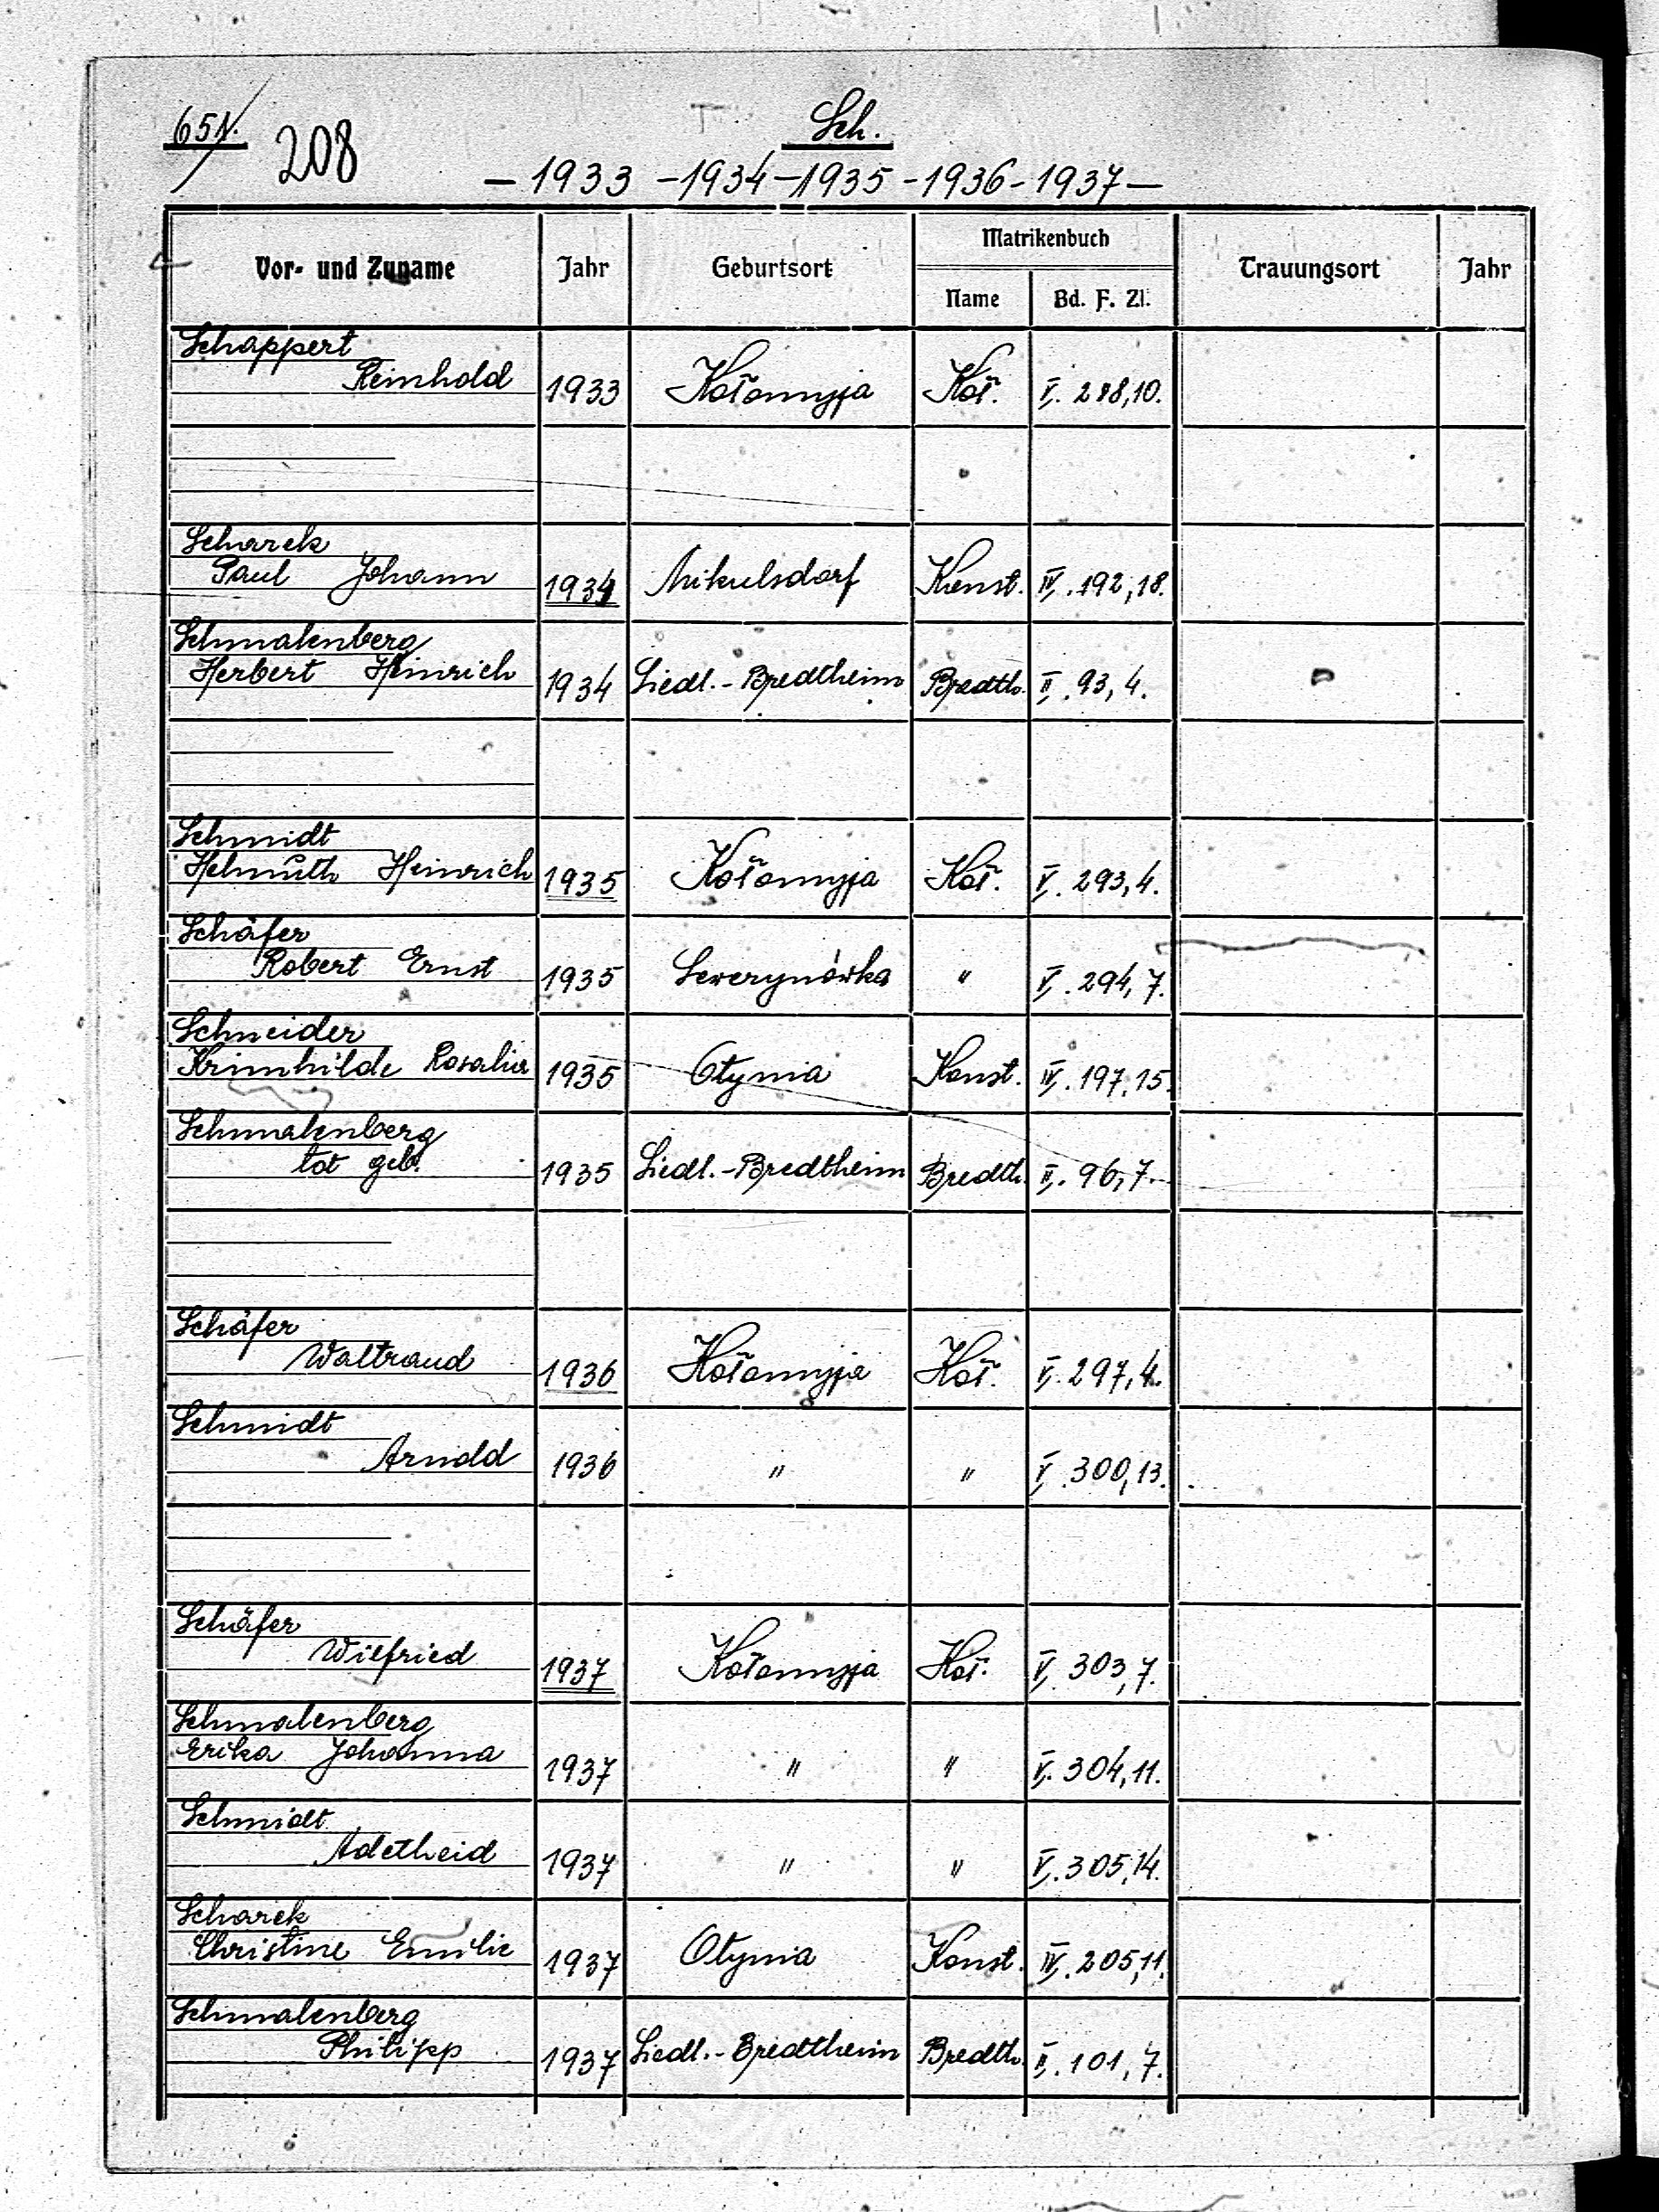 651.
208
Sch.
– 1933 – 1934 – 1935 – 1936 – 1937 –
Vor- und Zuname Jahr Geburtsort Matrikenbuch Trauungsort Jahr
Name Bd. F. Zl.
Schappert
Reinhold 1933 Kołomyja Koł. V. 288,10.
Scharek
Paul Johann 1934 Mikulsdorf Konst. IV. 192,18.
Schmalenberg
Herbert Heinrich 1934 Siedl.-Bredtheim Bredth. II. 93,4.
Schmidt
Helmuth Heinrich 1935 Kołomyja Koł. V. 293,4.
Schäfer
Robert Ernst 1935 Sewerynówka " V. 294,7.
Schneider
Krimhilde Rosalia 1935 Otynia Konst. IV. 197,15.
Schmalenberg
tot geb. 1935 Siedl.-Bredtheim Bredth. II. 96,7.
Schäfer
Waltraud 1936 Kołomyja Koł. V. 297,4.
Schmidt
Arnold 1936 " " V. 300,13.
Schäfer
Wilfried 1937 Kołomyja Koł. V. 303,7.
Schmalenberg
Erika Johanna 1937 " " V. 304,11.
Schmidt
Adelheid 1937 " " V. 305,14.
Scharek
Christine Emilie 1937 Otynia Konst. IV. 205,11.
Schmalenberg
Philipp 1937 Siedl.-Bredtheim Bredth. II. 101,7.